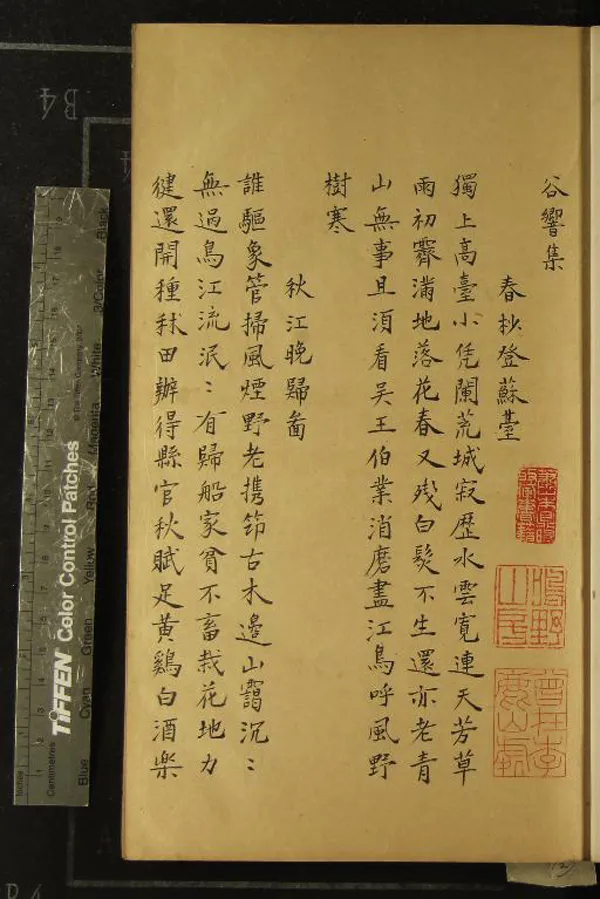 谷響集
春杪登蘇臺
獨上高臺小凭闌荒城寂歷水雲寬連天芳草
雨初霽滿地落花春又殘白髮不生還亦老青
山無事且須看吴王伯業消磨盡江鳥呼風野
樹寒
秋江晚歸啚
誰驅象管掃風煙野老携笻古木邊山靄沉〻
無過鳥江流泯〻有歸船家貧不畜栽花地力
健還開種秫田辦得縣官秋賦足黄鷄白酒樂
B4
TIFFEN Color Control Patches
Blue Cyan Green Yellow Red Magenta White 3/Color Black
Inches
Centimetres
(2)